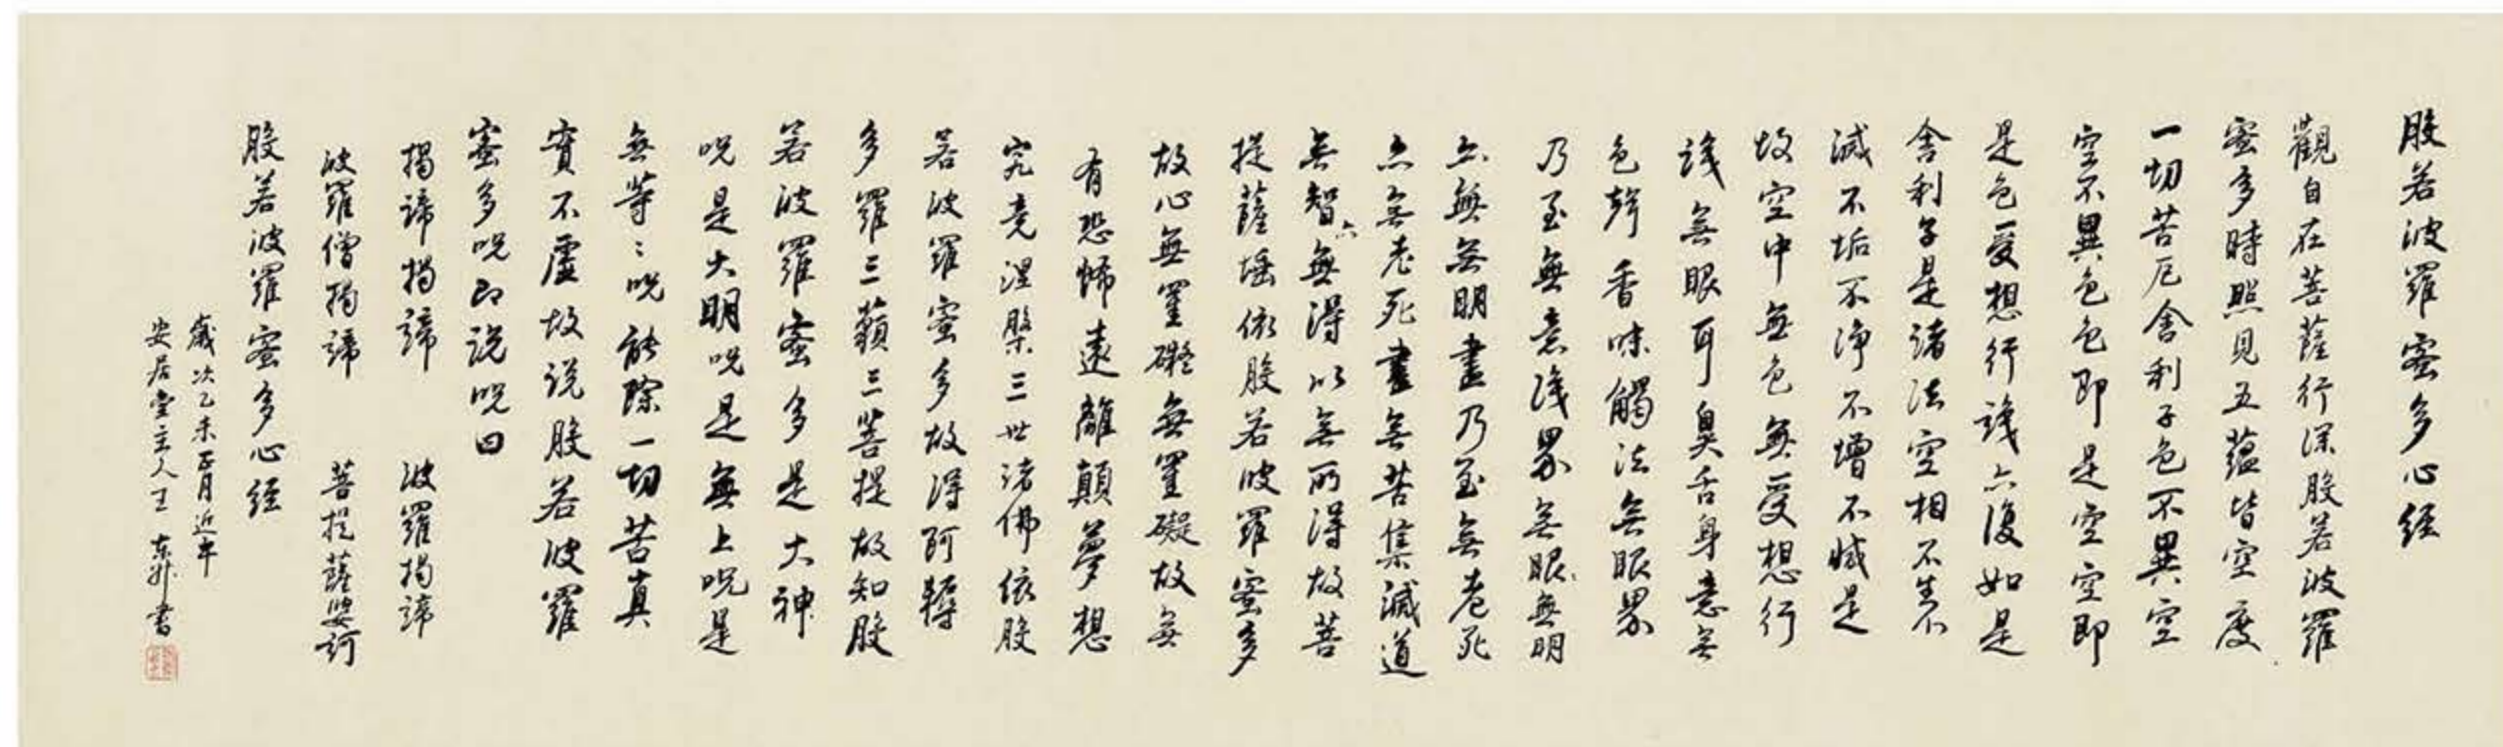 般若波羅蜜多心經
觀自在菩薩行深般若波羅
蜜多時照見五蘊皆空度
一切苦厄舍利子色不異空
空不異色色即是空空即
是色受想行識亦復如是
舍利子是諸法空相不生不
滅不垢不淨不增不減是
故空中無色無受想行
識無眼耳鼻舌身意無
色聲香味觸法無眼界
乃至無意識界無眼無明
亦無無明盡乃至無老死
亦無老死盡無苦集滅道
無智亦無得以無所得故菩
提薩埵依般若波羅蜜多
故心無罣礙無罣礙故無
有恐怖遠離顛夢想
究竟涅槃三世諸佛依般
若波羅蜜多故得阿耨
多羅三藐三菩提故知般
若波羅蜜多是大神
咒是大明咒是無上咒是
無等〻咒能除一切苦真
實不虛故說般若波羅
蜜多咒即說咒曰
揭諦揭諦 波羅揭諦
波羅僧揭諦 菩提薩婆訶
般若波羅蜜多心經
歲次乙未正月近午
安居堂主人王 东升书